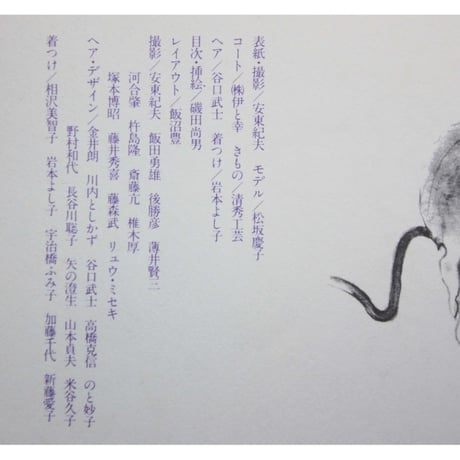 表紙・撮影／安東紀夫　モデル／松坂慶子
コート／㈱伊と幸　きもの／清秀工芸
ヘア／谷口武士　着つけ／岩本よし子
目次・挿絵／磯田尚男
レイアウト／飯沼豊
撮影／安東紀夫　飯田勇雄　後勝彦　薄井賢三
河合肇　杵島隆　斎藤亢　椎木厚
塚本博昭　藤井秀喜　藤森武　リュウ・ミセキ
ヘア・デザイン／金井朗　川内としかず　谷口武士　高橋克信　のと妙子
野村和代　長谷川聡子　矢の澄生　山本貞夫　米谷久子
着つけ／相沢美智子　岩本よし子　宇治橋ふみ子　加藤千代　新藤愛子